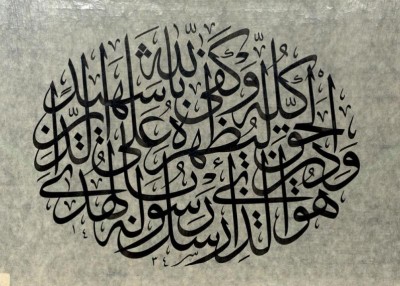 هو الذي ارسل رسوله بالهدى
ودين الحق ليظهره على الدين
كله وكفى بالله شهيدا